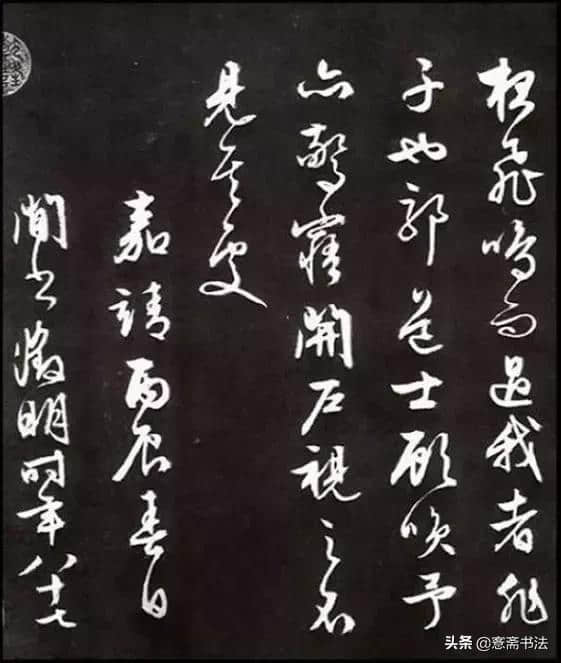 夜飛鳴而過我者非
子也耶道士顧咲予
亦驚寤開戶視之不
見其處
嘉靖丙辰春日
閒書徵明時年八十七
头条 @斋书法